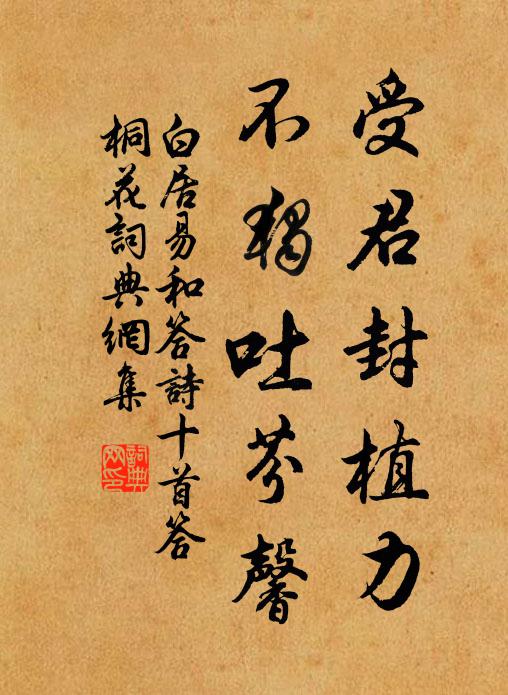 受君封植力
不獨吐芬馨
白居易和答詩十首答
桐花詞典網集
詞典
网印